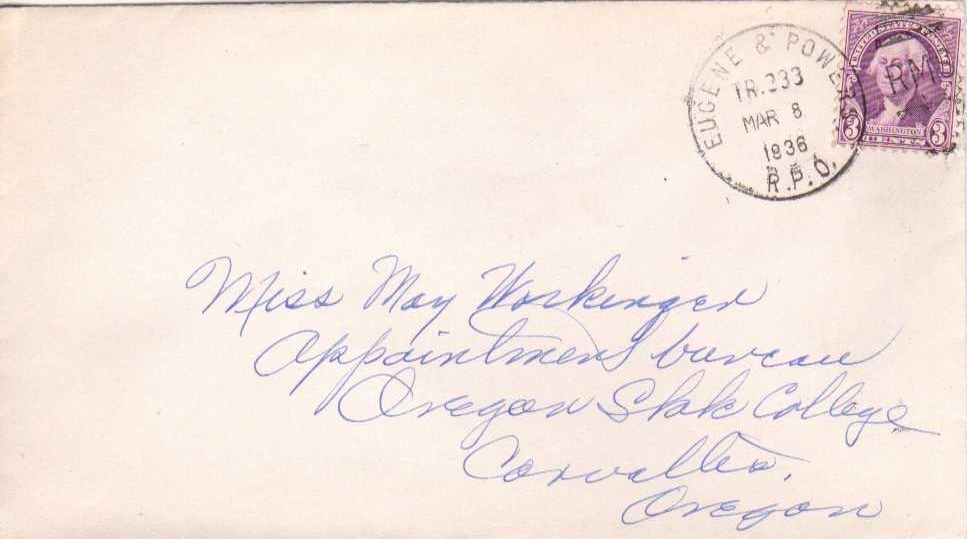 EUGENE & POWERS
TR.233
MAR 8
1936
R.P.O.
UNITED STATES POSTAGE
RMS
3 WASHINGTON 3
CENTS
Miss May Workinger
Appointment bureau
Oregon State College
Corvallis,
Oregon